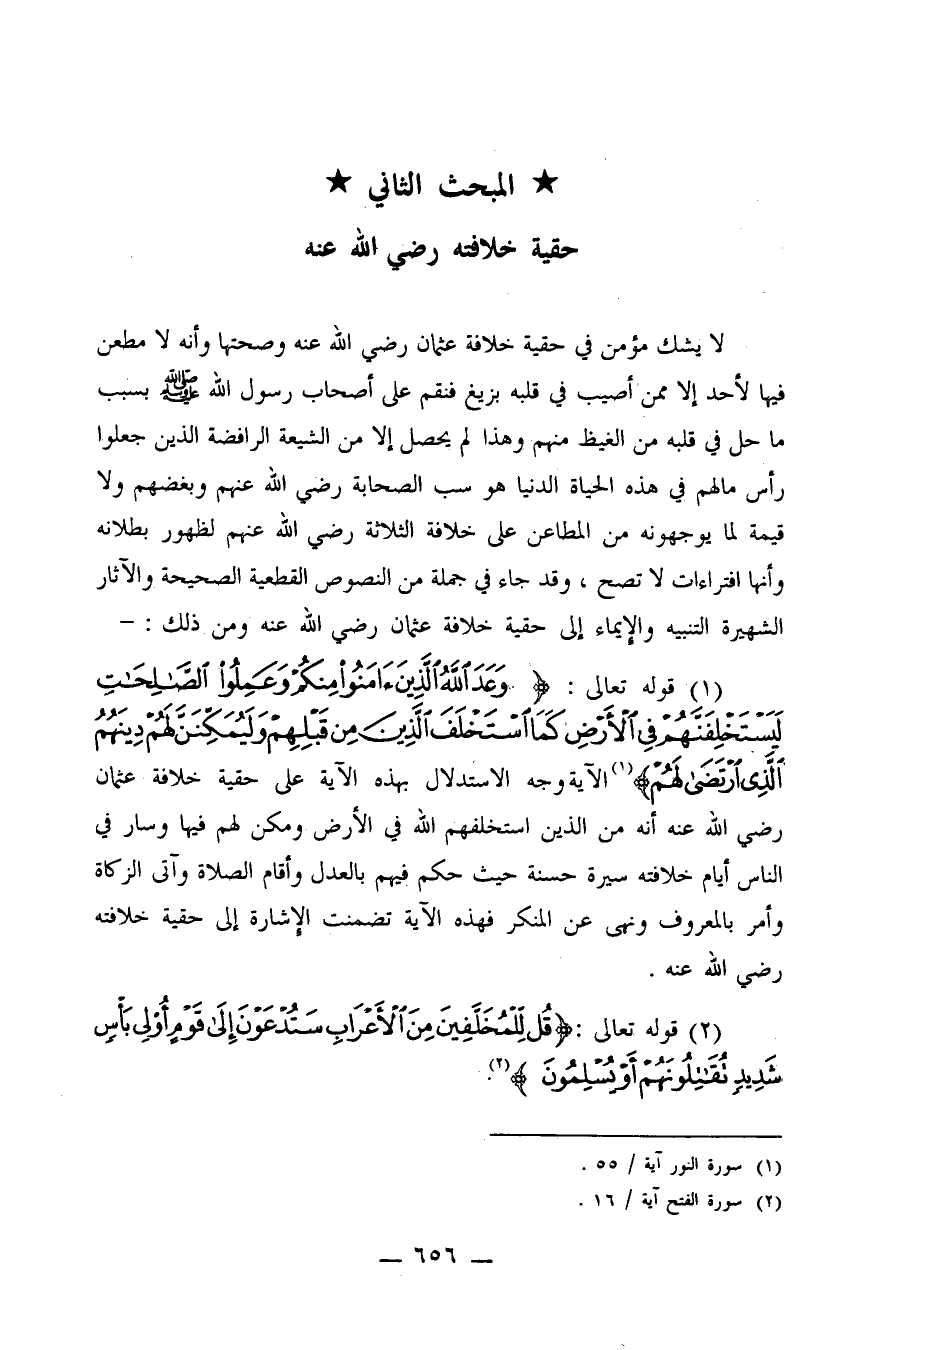 ★ المبحث الثاني ★
حقية خلافته رضي الله عنه
لا يشك مؤمن في حقية خلافة عثمان رضي الله عنه وصحتها وأنه لا مطعن
فيها لأحد إلا ممن أصيب في قلبه بزيغ فنقم على أصحاب رسول الله ﷺ بسبب
ما حل في قلبه من الغيظ منهم وهذا لم يحصل إلا من الشيعة الرافضة الذين جعلوا
رأس مالهم في هذه الحياة الدنيا هو سب الصحابة رضي الله عنهم وبغضهم ولا
قيمة لما يوجهونه من المطاعن على خلافة الثلاثة رضي الله عنهم لظهور بطلانه
وأنها افتراءات لا تصح ، وقد جاء في جملة من النصوص القطعية الصحيحة والآثار
الشهيرة التنبيه والإيماء إلى حقية خلافة عثمان رضي الله عنه ومن ذلك : –
(١) قوله تعالى : ﴿ وَعَدَ ٱللَّهُ ٱلَّذِينَ ءَامَنُوا۟ مِنكُمْ وَعَمِلُوا۟ ٱلصَّـٰلِحَـٰتِ
لَيَسْتَخْلِفَنَّهُمْ فِى ٱلْأَرْضِ كَمَا ٱسْتَخْلَفَ ٱلَّذِينَ مِن قَبْلِهِمْ وَلَيُمَكِّنَنَّ لَهُمْ دِينَهُمُ
ٱلَّذِى ٱرْتَضَىٰ لَهُمْ ﴾(١) الآية وجه الاستدلال بهذه الآية على حقية خلافة عثمان
رضي الله عنه أنه من الذين استخلفهم الله في الأرض ومكن لهم فيها وسار في
الناس أيام خلافته سيرة حسنة حيث حكم فيهم بالعدل وأقام الصلاة وآتى الزكاة
وأمر بالمعروف ونهى عن المنكر فهذه الآية تضمنت الإشارة إلى حقية خلافته
رضي الله عنه .
(٢) قوله تعالى : ﴿ قُل لِّلْمُخَلَّفِينَ مِنَ ٱلْأَعْرَابِ سَتُدْعَوْنَ إِلَىٰ قَوْمٍ أُو۟لِى بَأْسٍ
شَدِيدٍ تُقَـٰتِلُونَهُمْ أَوْ يُسْلِمُونَ ﴾(٢).
(١) سورة النور آية / ٥٥ .
(٢) سورة الفتح آية / ١٦ .
— ٦٥٦ —